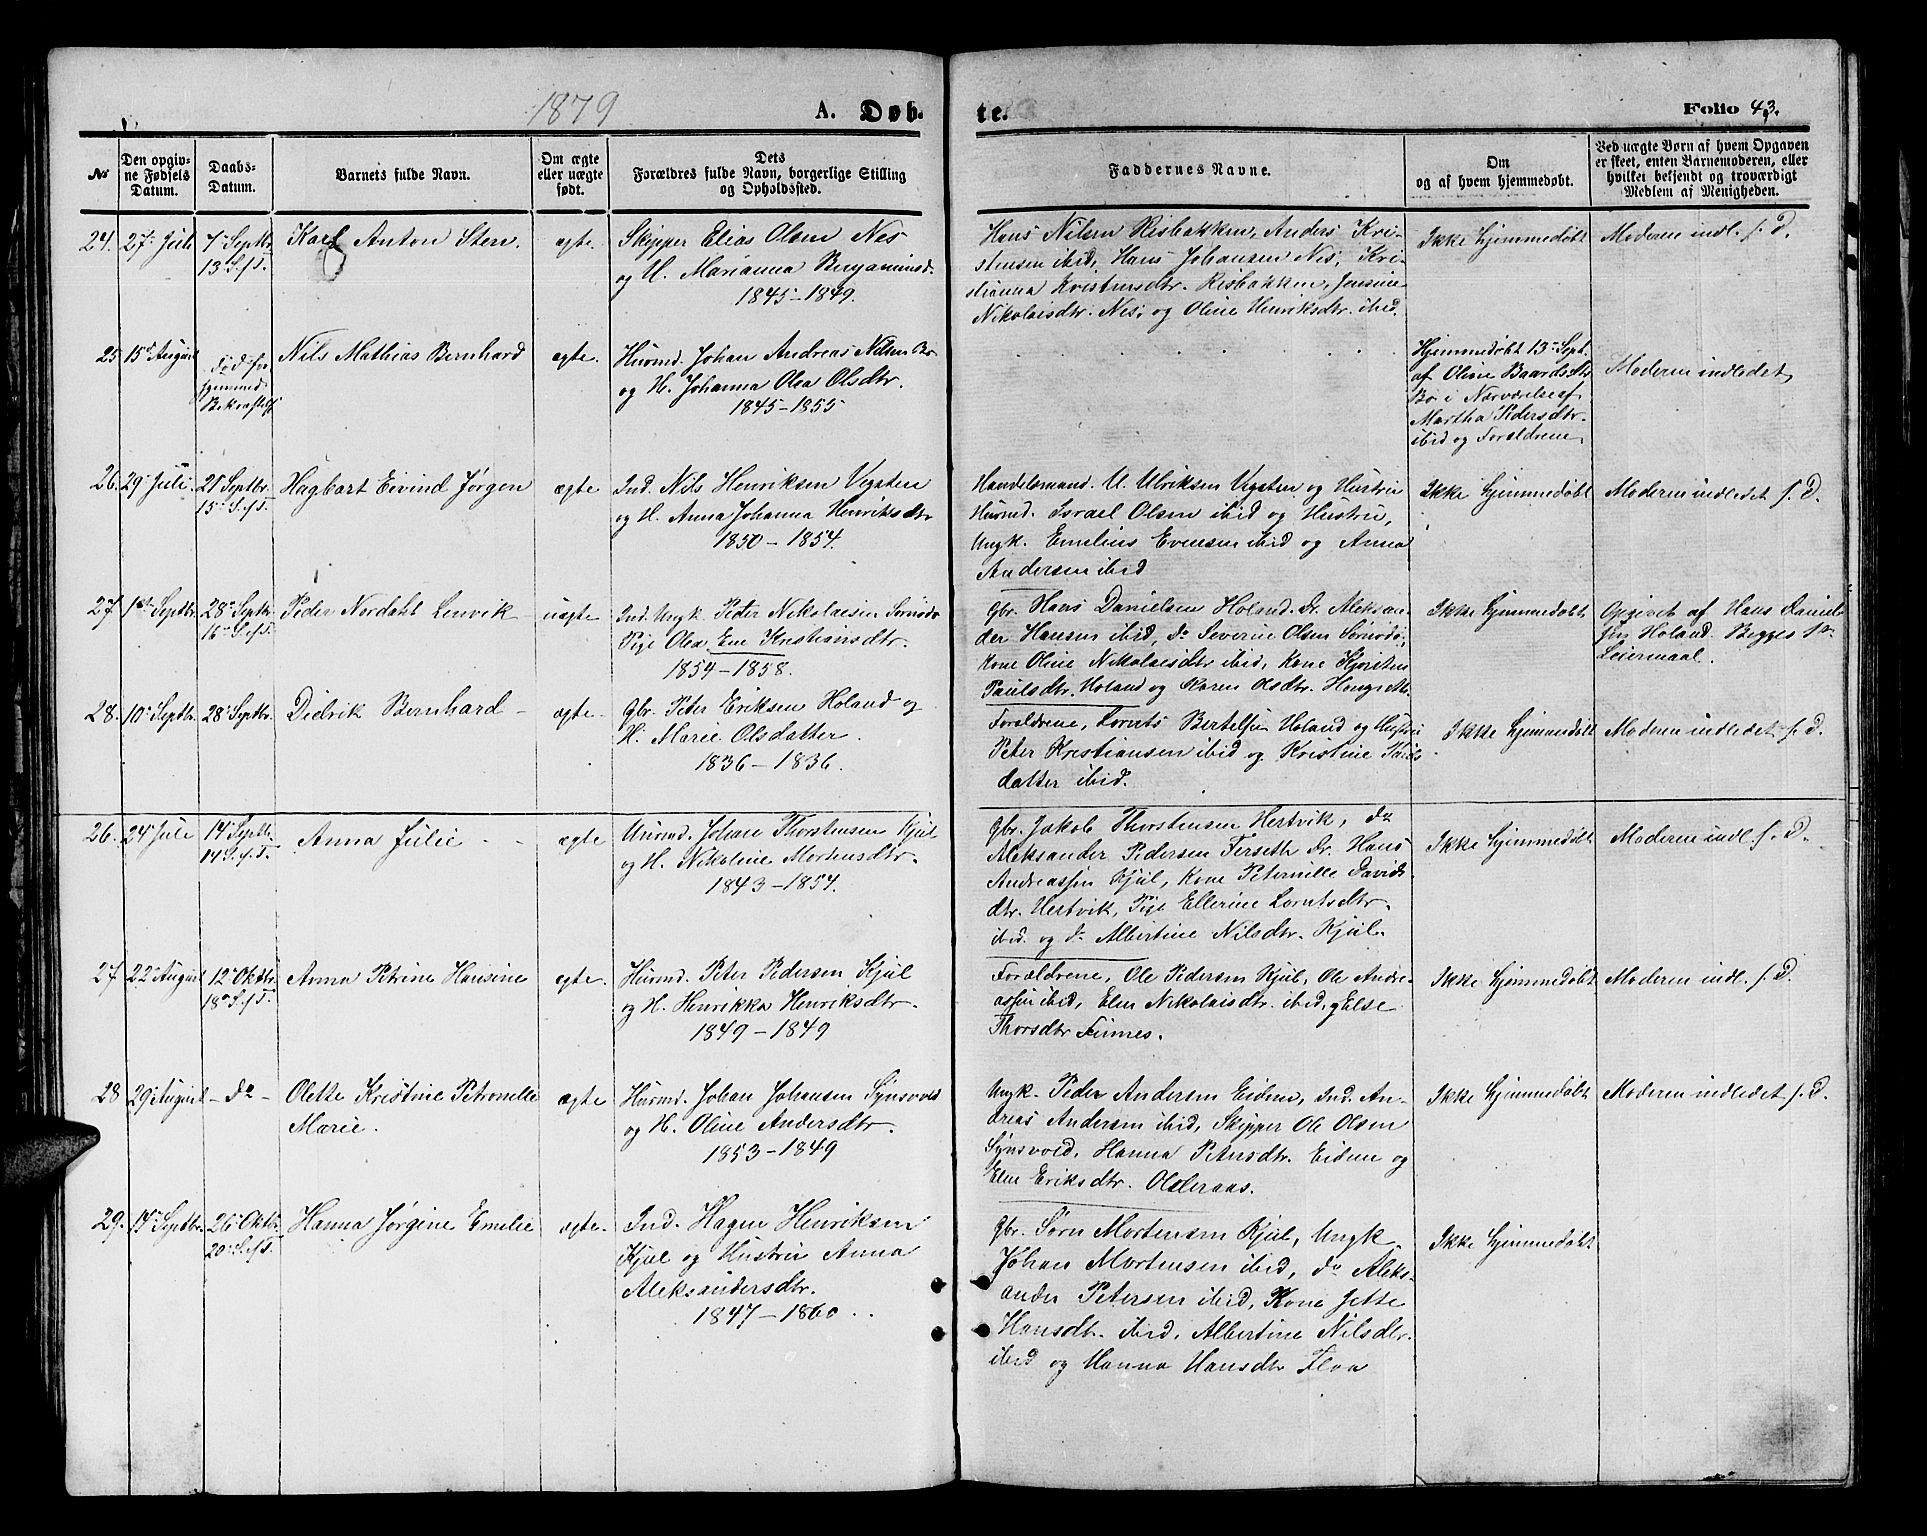 1879
A. Døb.
te.
Folio 43.
No
Den opgiv-
ne Fødsels
Datum.
Daabs-
Datum.
Barnets fulde Navn.
Om ægte
eller uægte
født.
Dets
Forældres fulde Navn, borgerlige Stilling
og Opholdssted.
Faddernes Navne.
Om
og af hvem hjemmedøbt.
Ved uægte Børn af hvem Opgaven
er skeet, enten Barnemoderen, eller
hvilket bekjendt og troværdigt
Medlem af Menigheden.
24. 27. Juli
7. Septbr.
13 S. f. T.
Karl Anton Sten.
ægte.
Skipper Elias Olsen Nes
og H. Marianna Benjaminsd.
1845-1849.
Hans Nilsen Risbakken, Anders Kri-
stensen ibid, Hans Johansen Nes, Kri-
stianna Kristensdtr. Risbakken, Jensine
Nikolaisdtr. Nes, og Oline Henriksdtr. ibid.
Ikke hjemmedøbt
Moderen indl. f. D.
25 15 August
Nils Mathias Bernhard
ægte.
Husmd. Johan Andreas Nilsen Bø
og H. Johanna Olea Olsdtr.
1845-1855
Hjemmedøbt 13 Sept.
af Oline Baardsdtr
Bø i Nærværelse af
Martha Pedersdtr.
ibid og Forældrene,
Moderen indledet,
26. 29. Juli.
21 Septbr.
15 S. f. T.
Hagbart Eivind Jørgen
ægte
Ind. Nils Henriksen Vegsten
og H. Anna Johanna Henriksdtr
1850-1854.
Handelsmand. U. Ulriksen Vegsten og Hustru
Husmd. Israel Olsen ibid og Hustru,
Ungk. Emelius Evensen ibid og Anna
Andersen ibid
Ikke hjemmedøbt
Moderen indledet f. D.
27. 1ste Septbr.
28 Septbr.
16 S. f. T.
Peder Nordahl Lenvik
uægte
Ind. Ungk. Peter Nikolaisen Sørnsdø
Pige Olea Ene Kristiansdtr.
1854-1858.
Gbr. Hans Danielsen Holand. Do. Aleksan-
der Hansen ibid, do Severine Olsen Sørnsdø,
Kone Oline Nikolaisdtr ibid, Kone Kjersten
Paulsdtr. Holand og Karen Olsdtr.
Ikke hjemmedøbt
Opgivet af Hans Daniel-
sen Holand. Begges 1ste
Leiermaal.
28. 10. Septbr.
28. Septbr.
Didrik Bernhard -
ægte.
Gbr. Peter Eriksen Holand og
H. Marie Olsdatter.
1836-1836.
Forældrene, Lornts Bertelsen Holand og Hustru
Peter Kristiansen ibid og Kristine Pauls-
datter ibid.
Ikke hjemmedøbt
Moderen indledet f. D.
26. 24. Juli
14 Septbr.
14 S. f. T.
Anna Julie - -
ægte
Husmd. Johan Thorstensen Kjul
og H. Nikoline Mortensdtr.
1843-1854.
Gbr. Jakob Thorstensen Hertvik, do
Aleksander Pedersen Ferseth do. Hans
Andreassen Kjul, Kone Peternille Davids-
dtr. Hertvik, Pige Ellerine Lorntsdtr.
ibid. og do Albertine Nilsdtr. Kjul.
Ikke hjemmedøbt
Moderen indl. f. D.
27 22 August
12 Oktbr.
18 S. f. T.
Anna Petrine Hansine
ægte.
Husmd. Peter Pedersen Kjul
og H. Henrikka Henriksdtr.
1849-1849
Forældrene, Ole Pedersen Kjul, Ole Andre-
assen ibid, Elen Nikolaisdtr. ibid, og Else
Thorsdtr Finnes.
Ikke hjemmedøbt
Moderen indl. f. D.
28 29 August
- do -
Olette Kristine Petronelle
Marie.
ægte
Husmd. Johan Johansen Synsvold
og H. Oline Andersdtr.
1853-1849
Ungk. Peder Andersen Eidem, Ind. An-
dreas Andersen ibid, Skipper Ole Olsen
Synsvold, Hanna Petersdtr. Eidem og
Elen Eriksdtr. Olderaas.
Ikke hjemmedøbt
Moderen indledet f. D.
29. 14 Septbr.
26 Oktbr.
20 S. f. T.
Hanna Jørgine Emelie
ægte.
Ind. Hagen Henriksen
Kjul og Hustru Anna
Aleksandersdtr.
1847-1860.
Gbr. Sørn Mortensen Kjul, Ungk.
Johan Mortensen ibid, do Aleks-
ander Petersen ibid, Kone Jette
Hansdtr. ibid, Albertine Nilsdtr.
ibid og Hanna Hansdtr Floa
Ikke hjemmedøbt